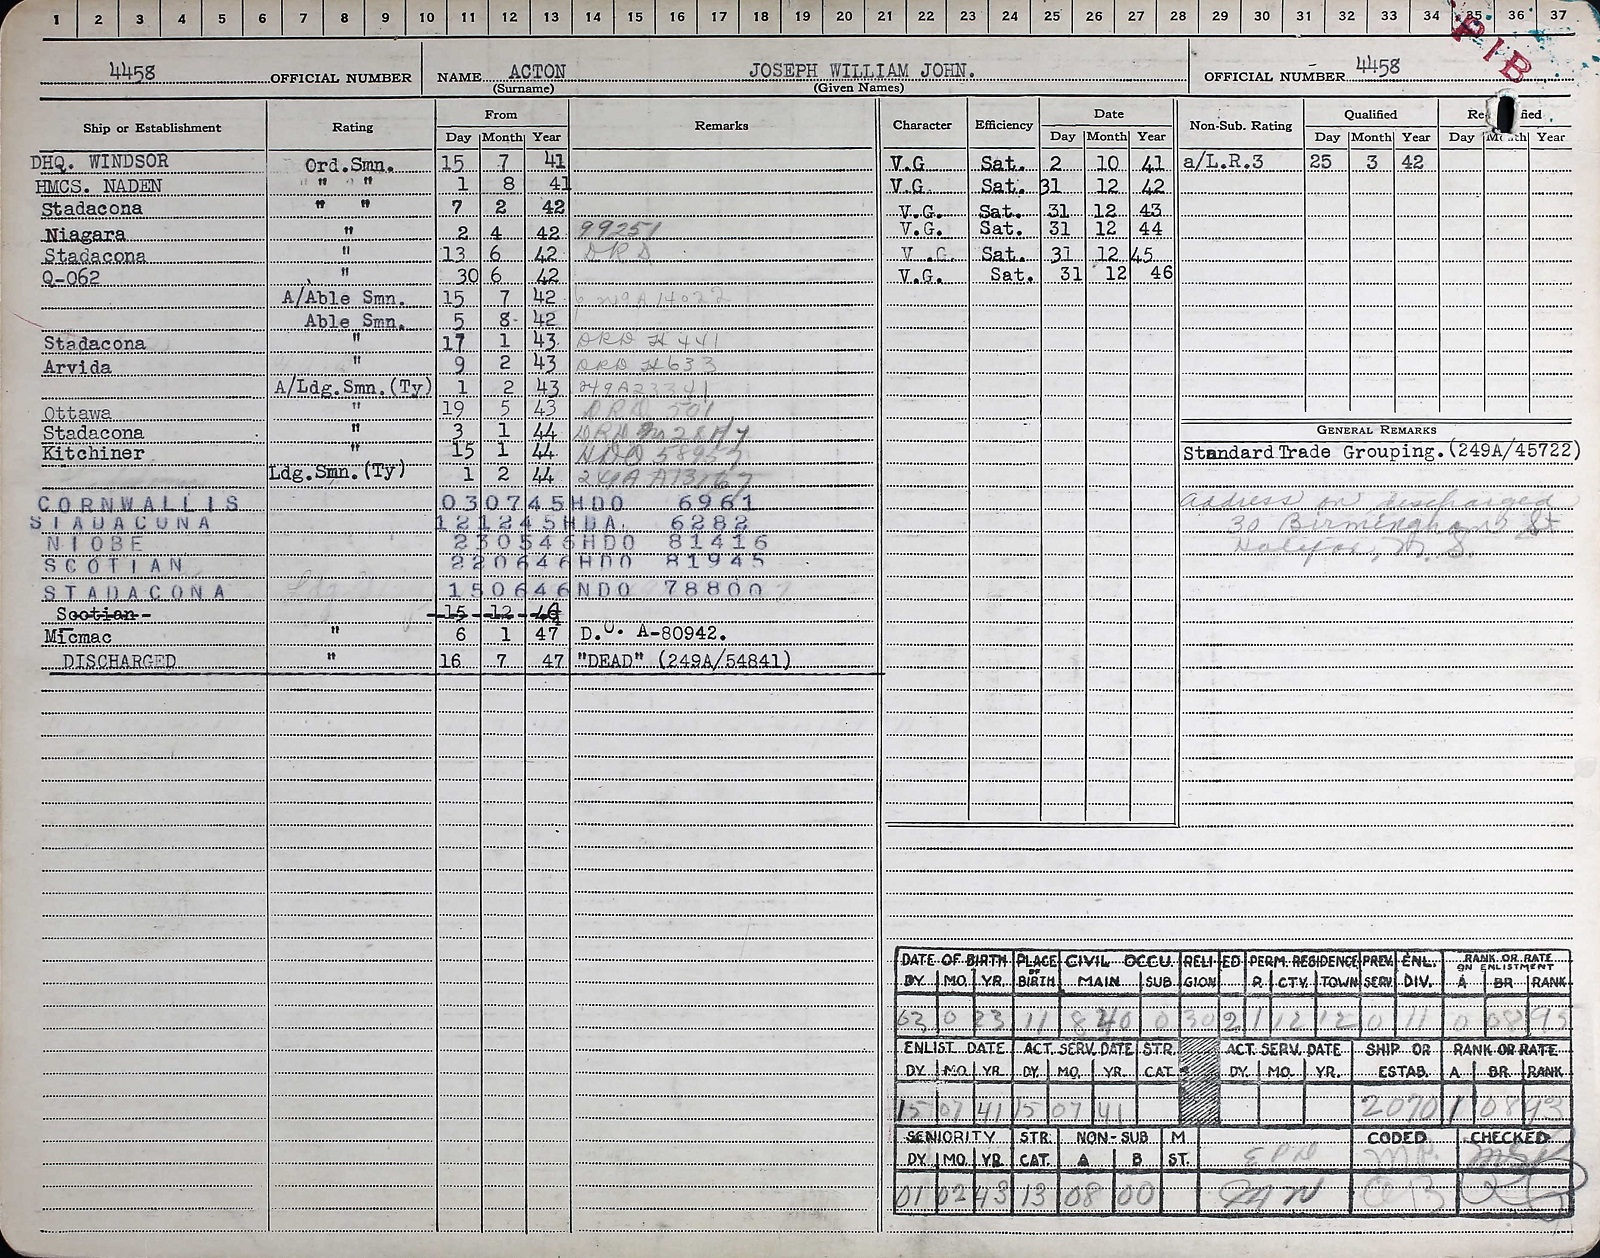 1 2 3 4 5 6 7 8 9 10 11 12 13 14 15 16 17 18 19 20 21 22 23 24 25 26 27 28 29 30 31 32 33 34 35 36 37
PIB
4458 OFFICIAL NUMBER NAME ACTON JOSEPH WILLIAM JOHN. OFFICIAL NUMBER 4458
(Surname) (Given Names)
Ship or Establishment Rating From Remarks Character Efficiency Date Non-Sub. Rating Qualified
Day Month Year Day Month Year Day Month Year Day Year
DHQ. WINDSOR Ord.Smn. 15 7 41 V.G Sat. 2 10 41 a/L.R.3 25 3 42
HMCS. NADEN " " 1 8 41 V.G. Sat. 31 12 42
Stadacona " " 7 2 42 V.G. Sat. 31 12 43
Niagara " 2 4 42 99251 V.G. Sat. 31 12 44
Stadacona " 13 6 42 DRD V.G. Sat. 31 12 45
Q-062 " 30 6 42 V.G. Sat. 31 12 46
A/Able Smn. 15 7 42
Able Smn. 5 8 42
Stadacona " 17 1 43 DRD H 441
Arvida " 9 2 43 DRD H633
A/Ldg.Smn.(Ty) 1 2 43 249A23341
Ottawa " 19 5 43 DRD 501
GENERAL REMARKS
Stadacona " 3 1 44 DRD
Kitchiner " 15 1 44 Standard Trade Grouping.(249A/45722)
Ldg.Smn.(Ty) 1 2 44
CORNWALLIS 030745 HDO 6961 Address on discharged
STADACONA 121245 HDA. 6282 30 Birmingham St
NIOBE 230546 HDO 81416 Halifax, N.S.
SCOTIAN 220646 HDO 81945
STADACONA 150646 NDO 78800
Scotian 15 12 46
Micmac " 6 1 47 D.O. A-80942.
DISCHARGED " 16 7 47 "DEAD" (249A/54841)
DATE OF BIRTH PLACE OF BIRTH CIVIL OCCU. RELIGION ED PERM. RESIDENCE PREV. SERV. ENL. DIV. RANK OR RATE ON ENLISTMENT
DY. MO. YR. MAIN SUB. P. CTY. TOWN A BR RANK
63 0 23 11 8 40 0 30 2 1 12 12 0 11 0 08 95
ENLIST. DATE ACT. SERV. DATE STR. ACT. SERV. DATE SHIP OR RANK OR RATE
DY. MO. YR. DY. MO. YR. CAT. DY. MO. YR. ESTAB. A BR. RANK
15 07 41 15 07 41 2070 1 08 93
SENIORITY STR. NON-SUB M CODED CHECKED
DY. MO. YR. CAT. A B ST.
01 02 43 13 08 00